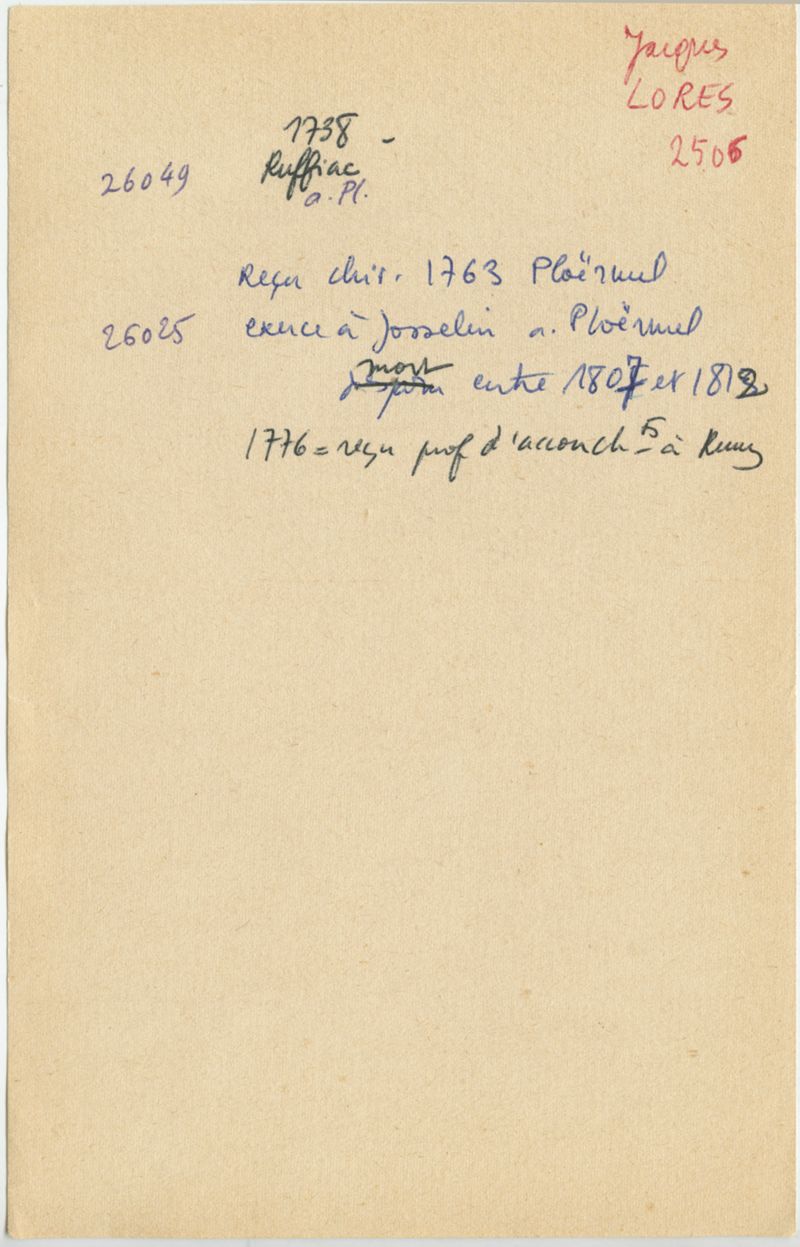 Jacques
LORES
2506
1738 -
26049 Ruffiac
a. Pl.
Reçu chir. 1763 Ploërmel
26025 exerce à Josselin a. Ploërmel
mort
entre 1807 et 1812
1776 = reçu prof d'accouch ts à Rennes